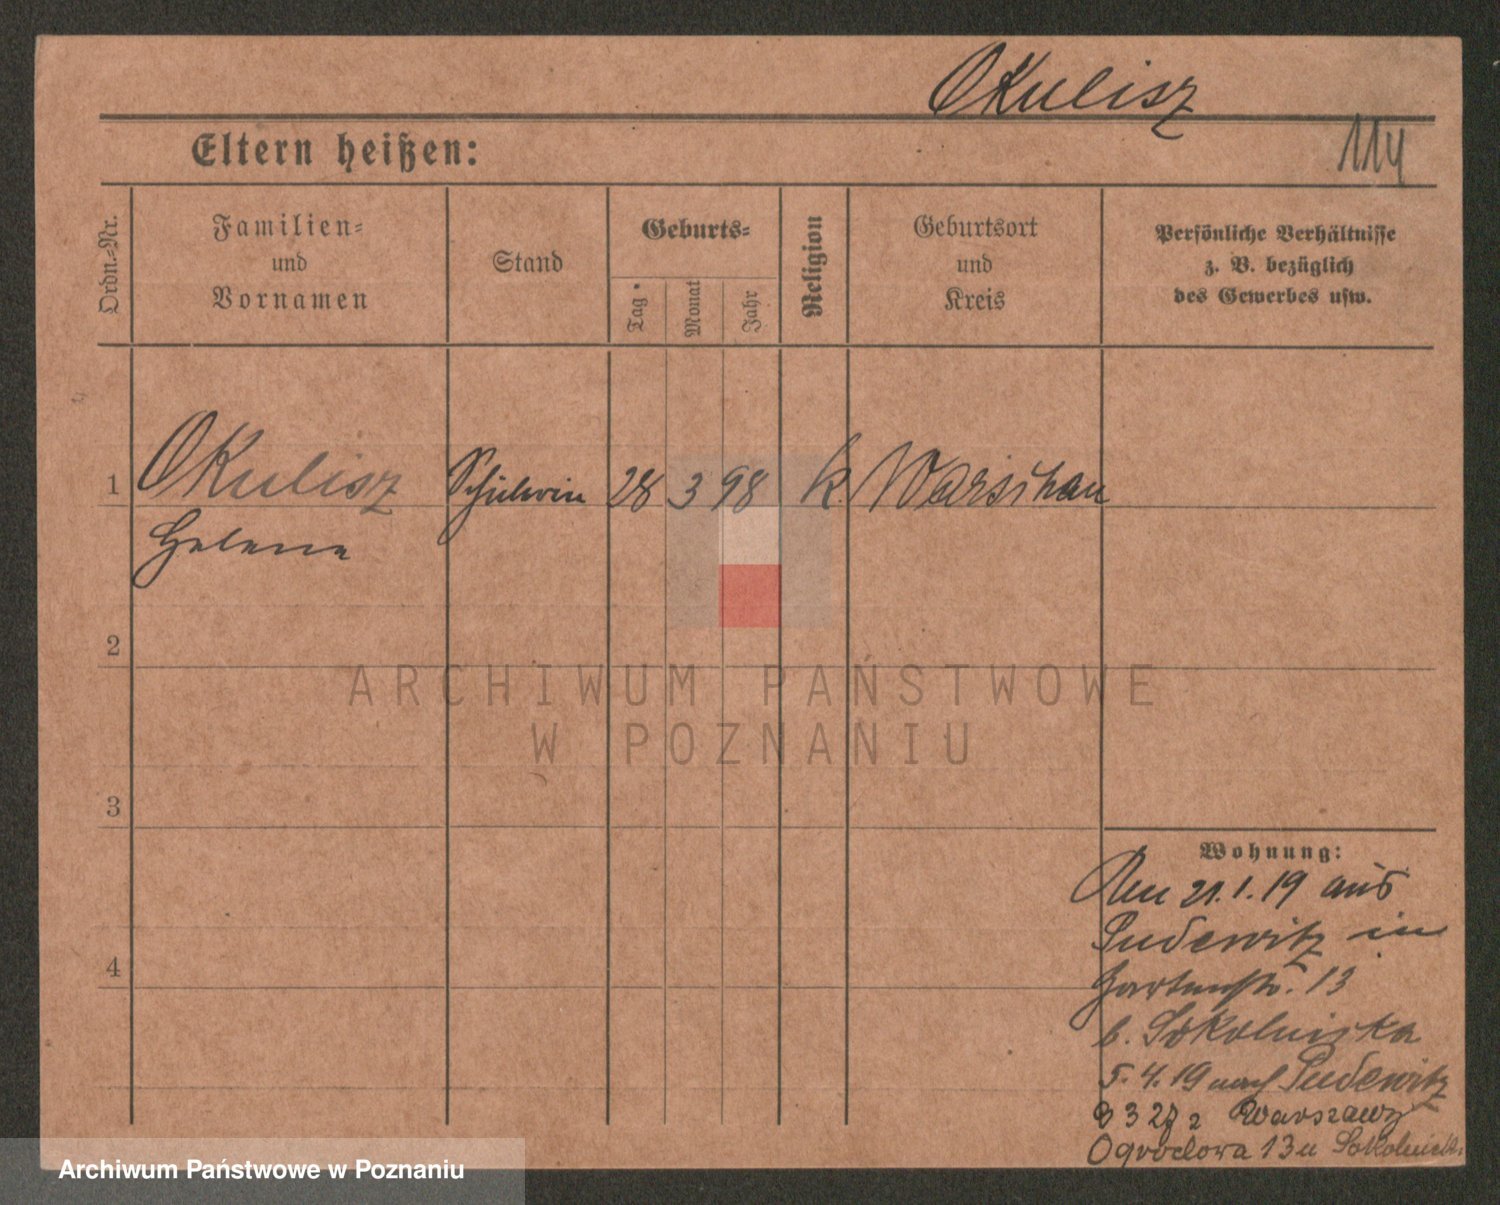 Okulisz
Eltern heißen:
114
Ordn.-Nr.
Familien-
und
Vornamen
Stand
Geburts-
Tag
Monat
Jahr
Religion
Geburtsort
und
Kreis
Persönliche Verhältnisse
z. B. bezüglich
des Gewerbes usw.
1 Okulisz Schülerin 28 3 98 k. Warschau
Helene
2
3
4
ARCHIWUM PAŃSTWOWE
W POZNANIU
Wohnung:
Den 21.1.19 aus
Pudewitz in
Gartenstr. 13
b. Sokolniska
5.4.19 nach Pudewitz
3 2 z Warszawy
Ogrodowa 13 u
Archiwum Państwowe w Poznaniu